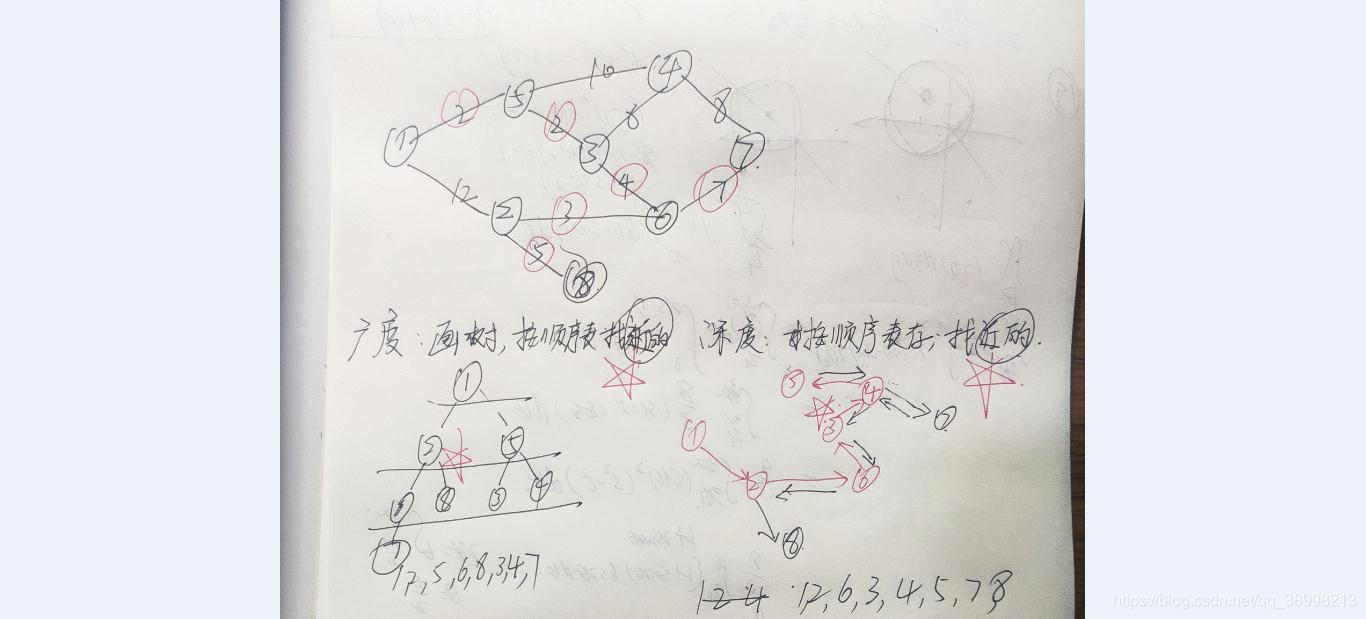 10
4
2
5
2
6
8
1
3
7
4
7
12
2
3
6
5
8
广度：画树，按顺序表找近的
深度：按顺序表存，找近的.
1
2
5
6
8
3
4
7
1 2, 5, 6, 8, 3, 4, 7
5
4
7
3
1
2
6
8
1 2 4 1, 2, 6, 3, 4, 5, 7 8
https://blog.csdn.net/qq_38998213